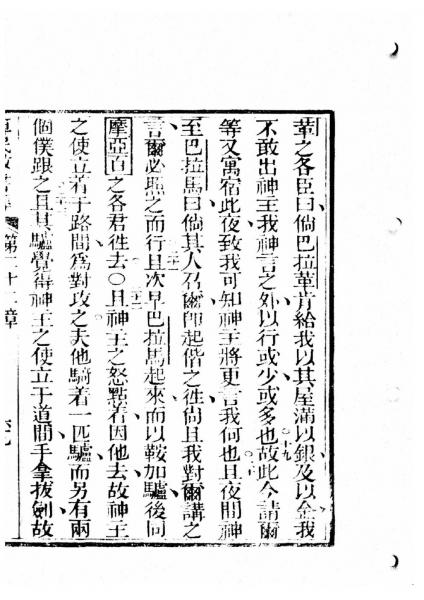 革之各臣曰倘巴拉革肯給我以其屋滿以銀及以金我
不敢出神主我神言之外以行或少或多也故此今請爾
〇十九
等又寓宿此夜致我可知神主將更言我何也且夜間神
〇二十
至巴拉馬曰倘其人召爾卽起偕之徃尙且我對爾講之
言爾必照之而行且次早巴拉馬起來而以鞍加驢後同
二十一
摩亞百之各君徃去〇且神主之怒㸃着因他去故神主
二十二
之使立着于路間爲對攻之夫他騎着一匹驢而另有兩
個僕跟之且其驢覺得神主之使立于道間手拿拔劍故
第二十二章